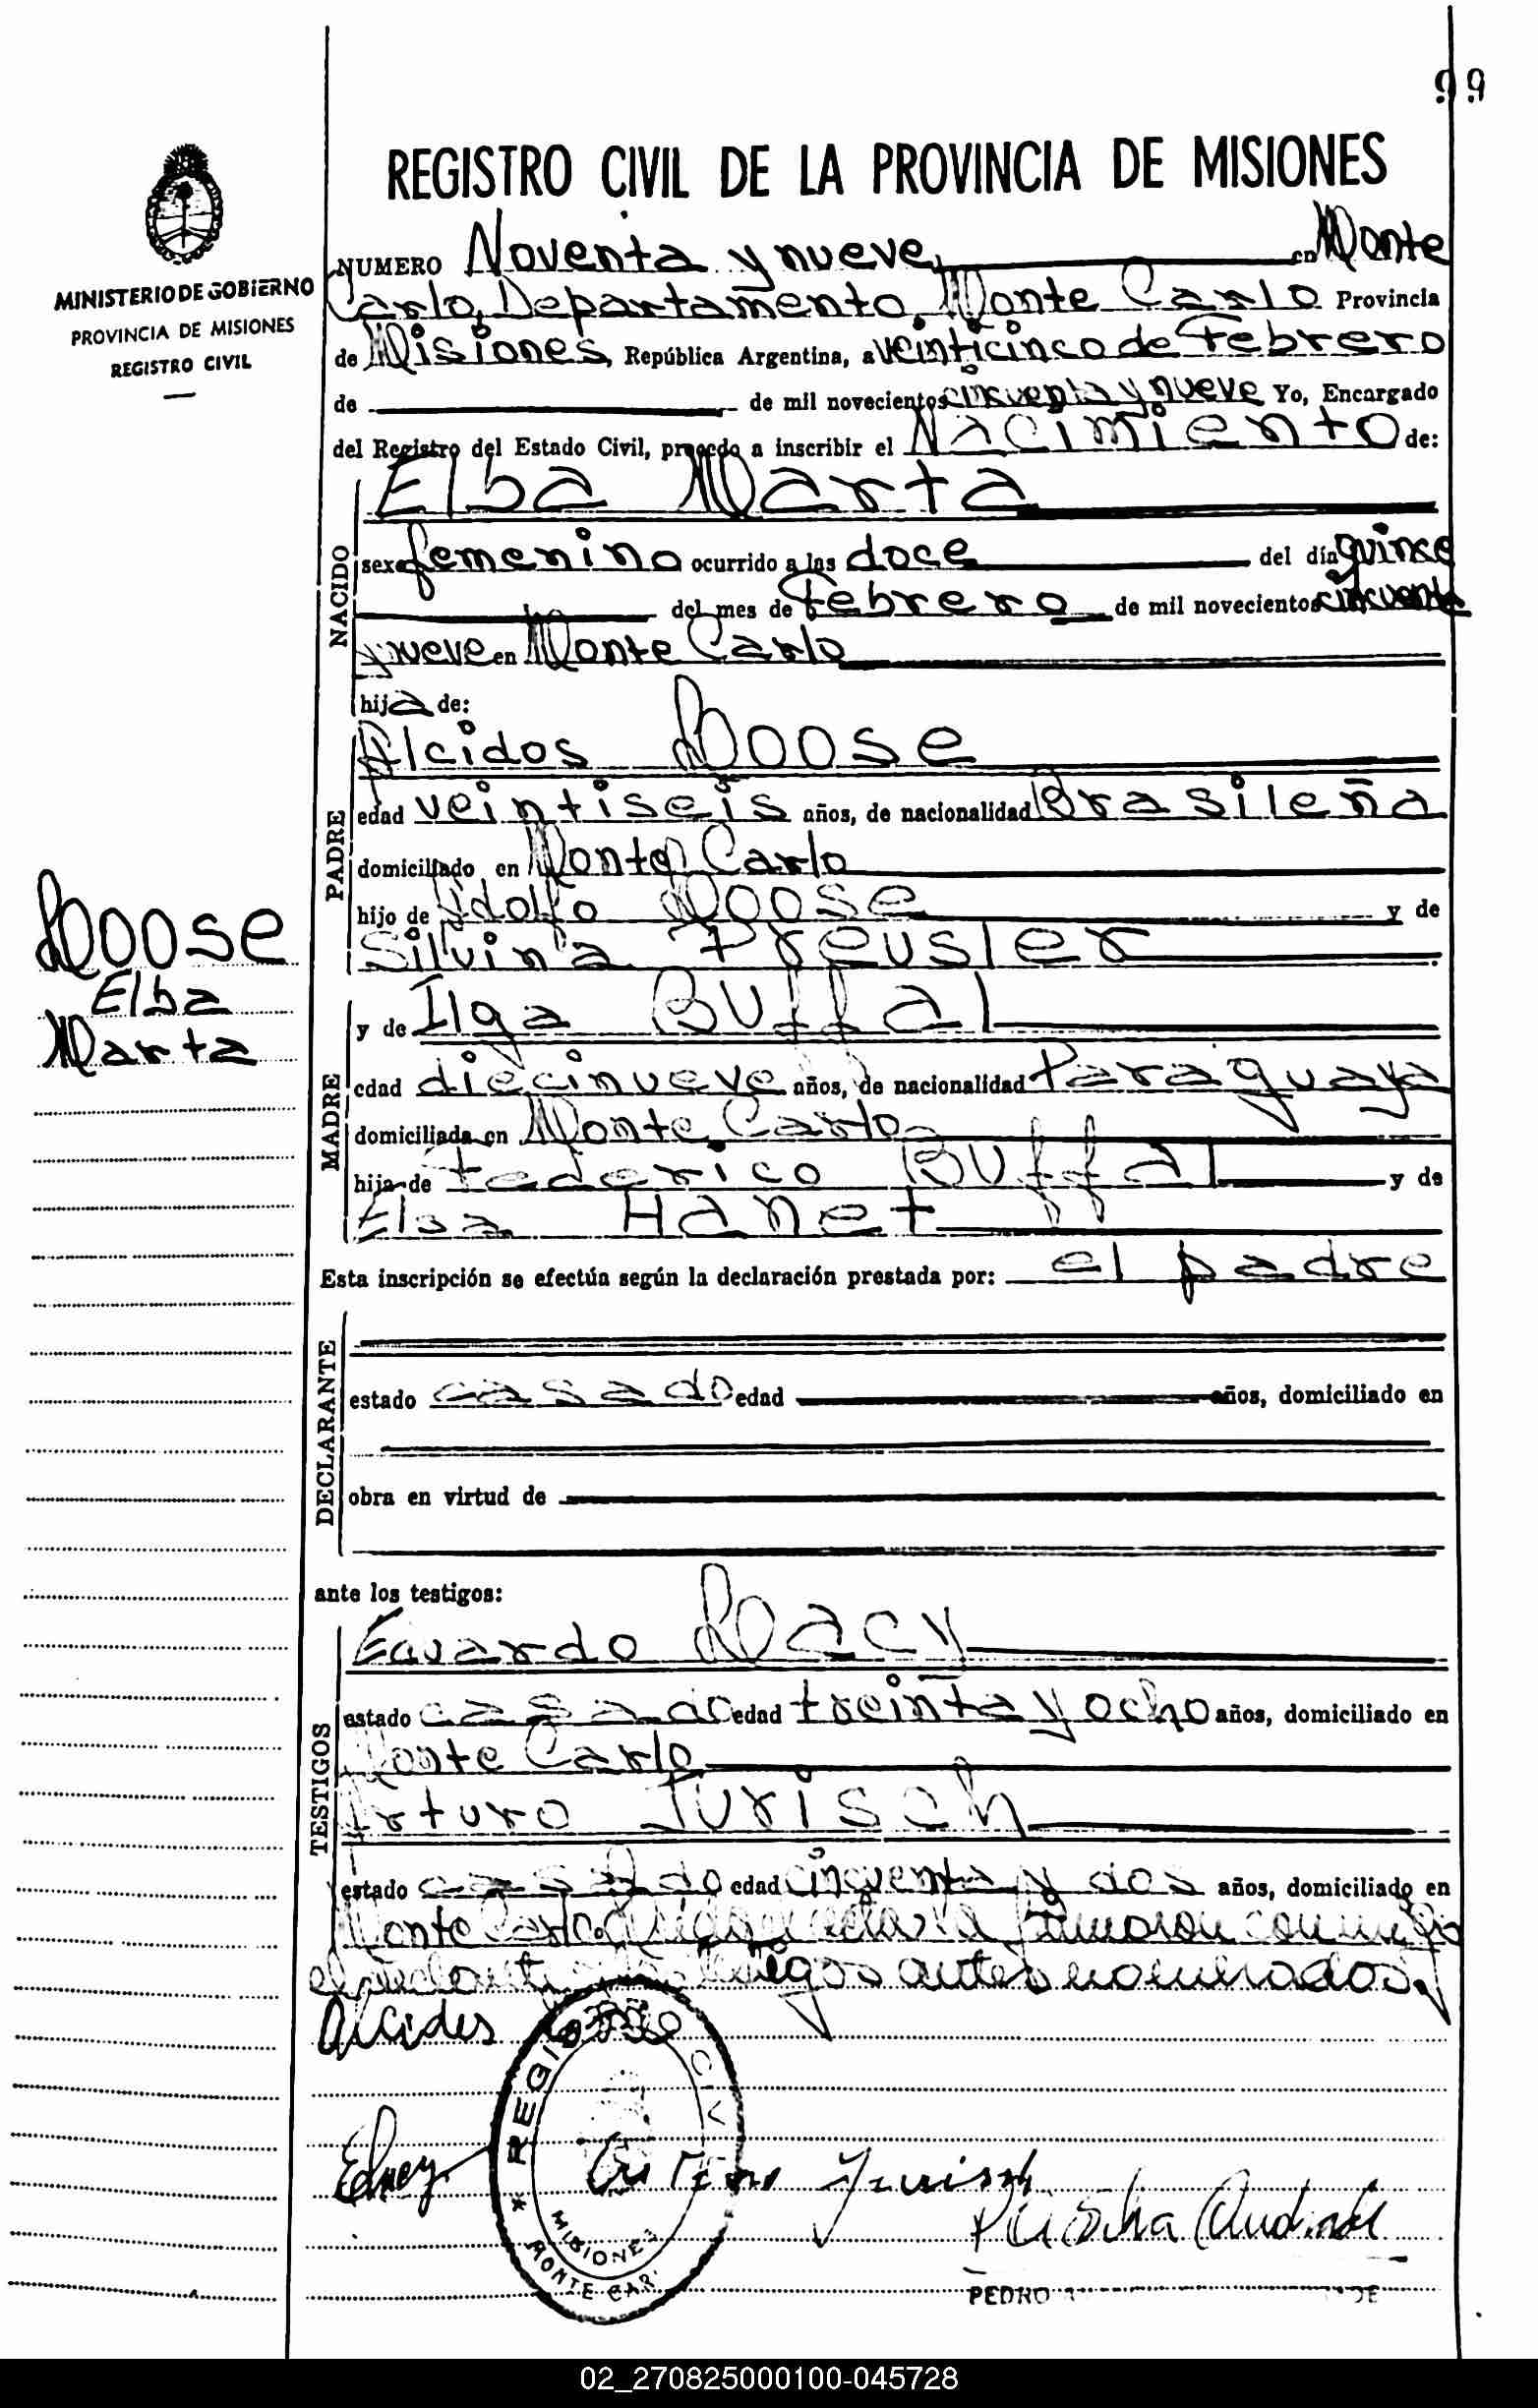 99
REGISTRO CIVIL DE LA PROVINCIA DE MISIONES
MINISTERIO DE GOBIERNO
PROVINCIA DE MISIONES
REGISTRO CIVIL
NUMERO Noventa y nueve en Monte
Carlo, Departamento, Monte Carlo Provincia
de Misiones, República Argentina, a veinticinco de Febrero
de de mil novecientos cincuenta y nueve Yo, Encargado
del Registro del Estado Civil, procedo a inscribir el Nacimiento de:
Elba Marta
NACIDO
sexo femenino ocurrido a las doce del día quince
del mes de Febrero de mil novecientos cincuenta
y nueve en Monte Carlo
hija de:
PADRE
Alcidos Doose
edad veintiseis años, de nacionalidad Brasileña
domiciliado en Monte Carlo
hijo de Adolfo Doose y de
Silvina Preusler
Doose
Elba
Marta
MADRE
y de Ilga Buffal
edad diecinueve años, de nacionalidad Paraguaya
domiciliada en Monte Carlo
hija de Federico Buffal y de
Elsa Hanet
Esta inscripción se efectúa según la declaración prestada por: el padre
DECLARANTE
estado casado edad años, domiciliado en
obra en virtud de
ante los testigos:
TESTIGOS
Eduardo Dacy
estado casado edad treinta y ocho años, domiciliado en
Monte Carlo
Arturo Jurisch
estado casado edad cincuenta y dos años, domiciliado en
Monte Carlo. firmaron conmigo
el testigos antes nombrados
Alcides Doose
REGISTRO CIVIL
MISIONES
MONTE CAR
Arturo Jurisch
PEDRO
02_270825000100-045728